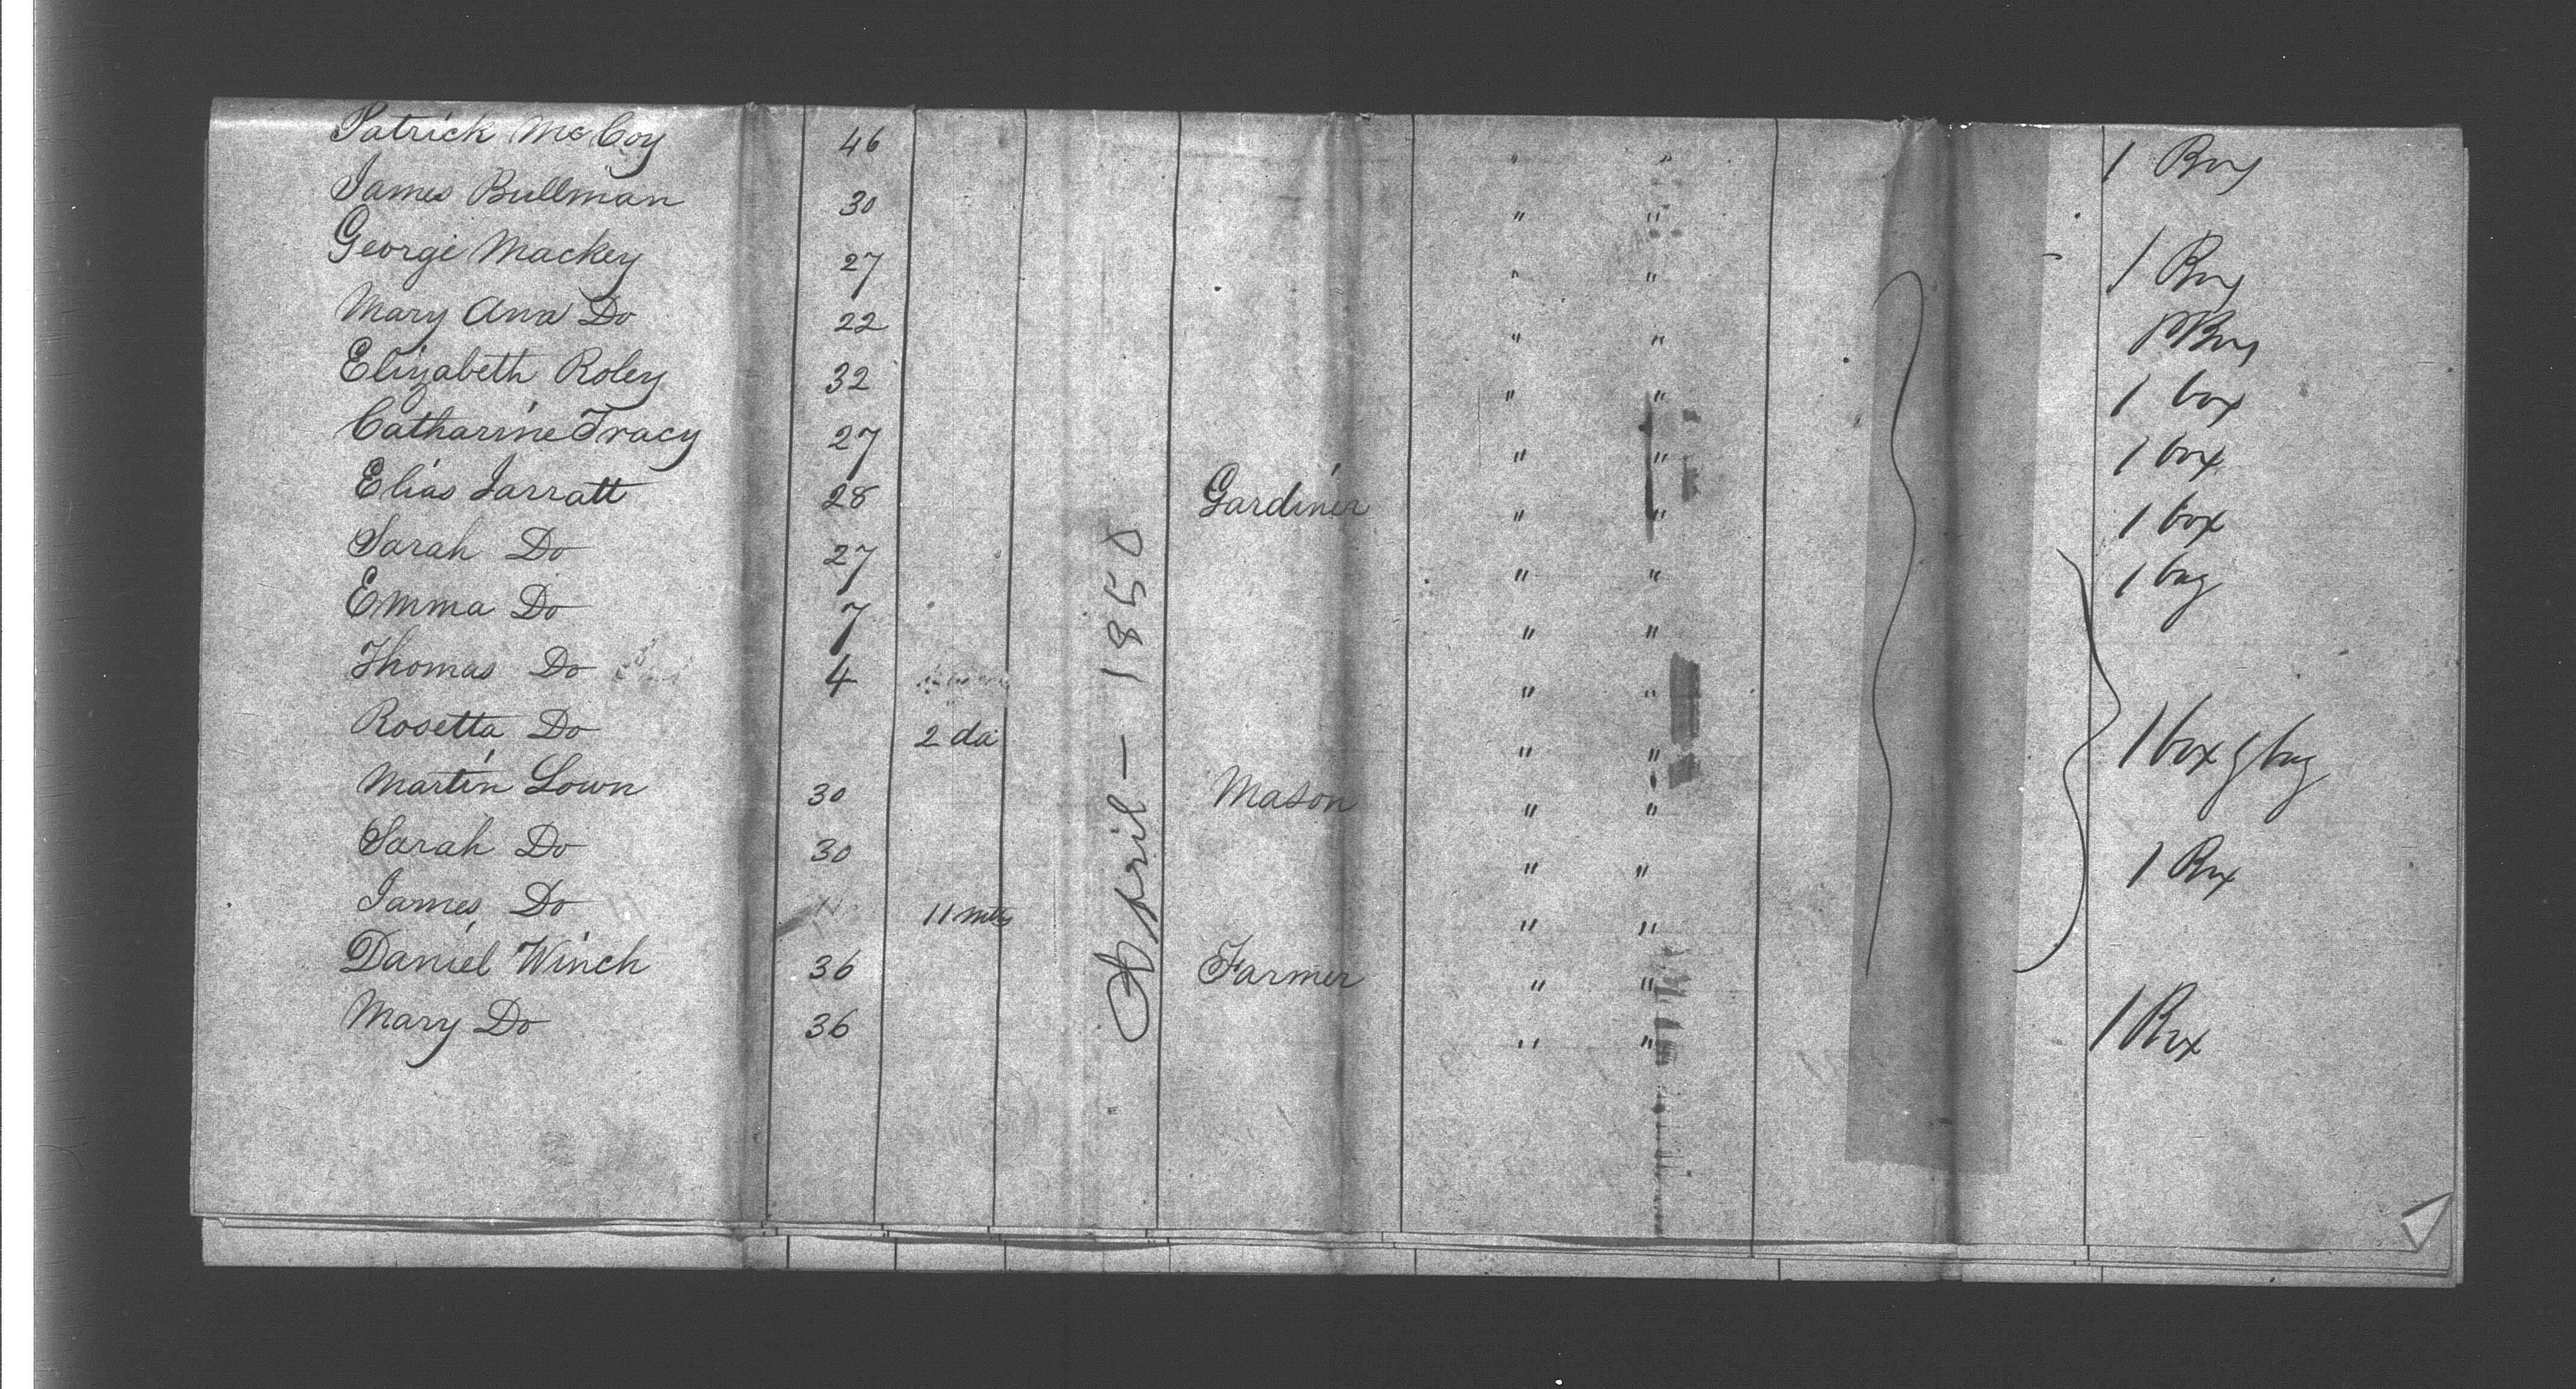 Patrick McCoy 46 " " 1 Box
James Bullman 30 " "
George Mackey 27 " " 1 Box
Mary Ann Do 22 " " 1 Box
Elizabeth Roley 32 " " 1 box
Catharine Tracy 27 " " 1 box
Elias Jarratt 28 Gardiner " " 1 box
Sarah Do 27 " " 1 bag
Emma Do 7 " "
Thomas Do 4 " "
Rosetta Do 2 da " " 1 box & bag
Martin Lown 30 Mason " "
Sarah Do 30 " " 1 Box
James Do 11 mths " "
Daniel Winch 36 Farmer " "
Mary Do 36 " " 1 Box
April — 1850